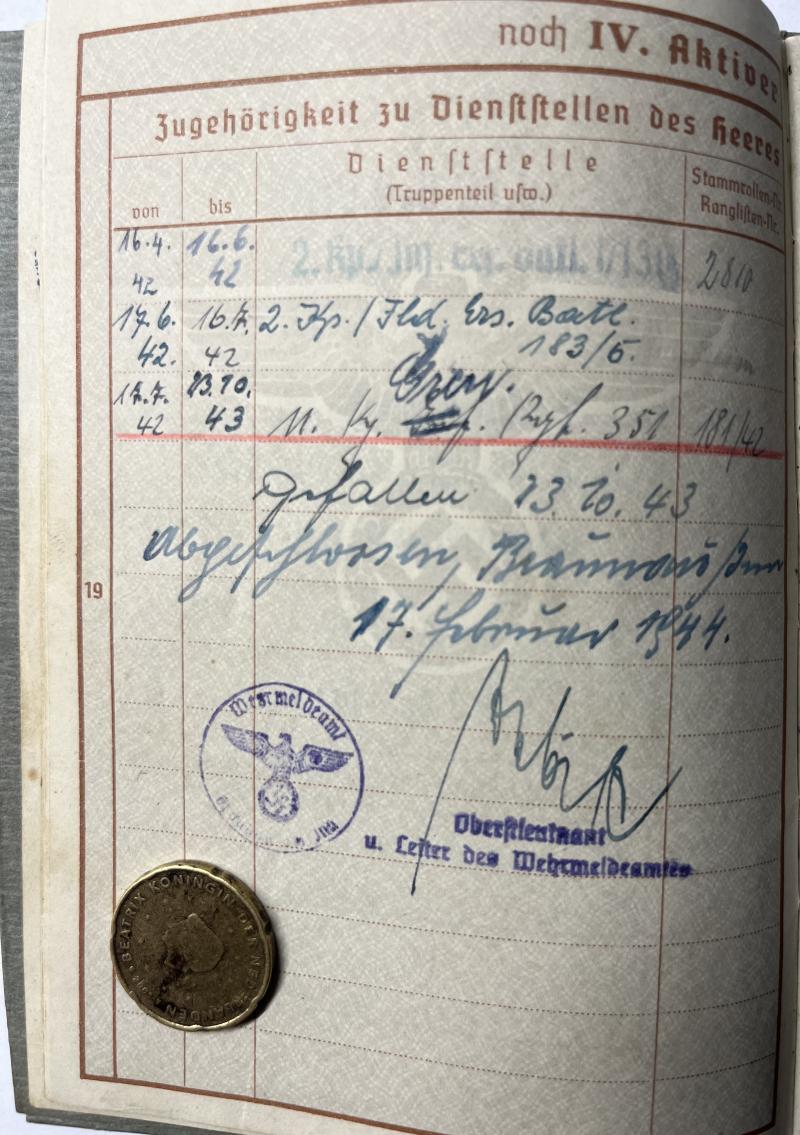 noch IV. Aktiver
Zugehörigkeit zu Dienststellen des Heeres
Dienststelle
(Truppenteil usw.)
Stammrollen-Nr.
Ranglisten-Nr.
von
bis
16.4. 42 16.6. 42 2. Kp./Inf. Ers. Batl. I/131 2810
17.6. 42. 16.7. 42 2. Kp./Fld. Ers. Batl. 183/5.
17.7. 42 23.10. 43 11. Kp. Gren. Rgt. 351 181/42
Gefallen 23.10.43
Abgeschlossen, Braunau/Inn
17. Februar 1944.
19
Wehrmeldeamt
Oberstleutnant
u. Leiter des Wehrmeldeamtes
BEATRIX KONINGIN DER NEDERLANDEN